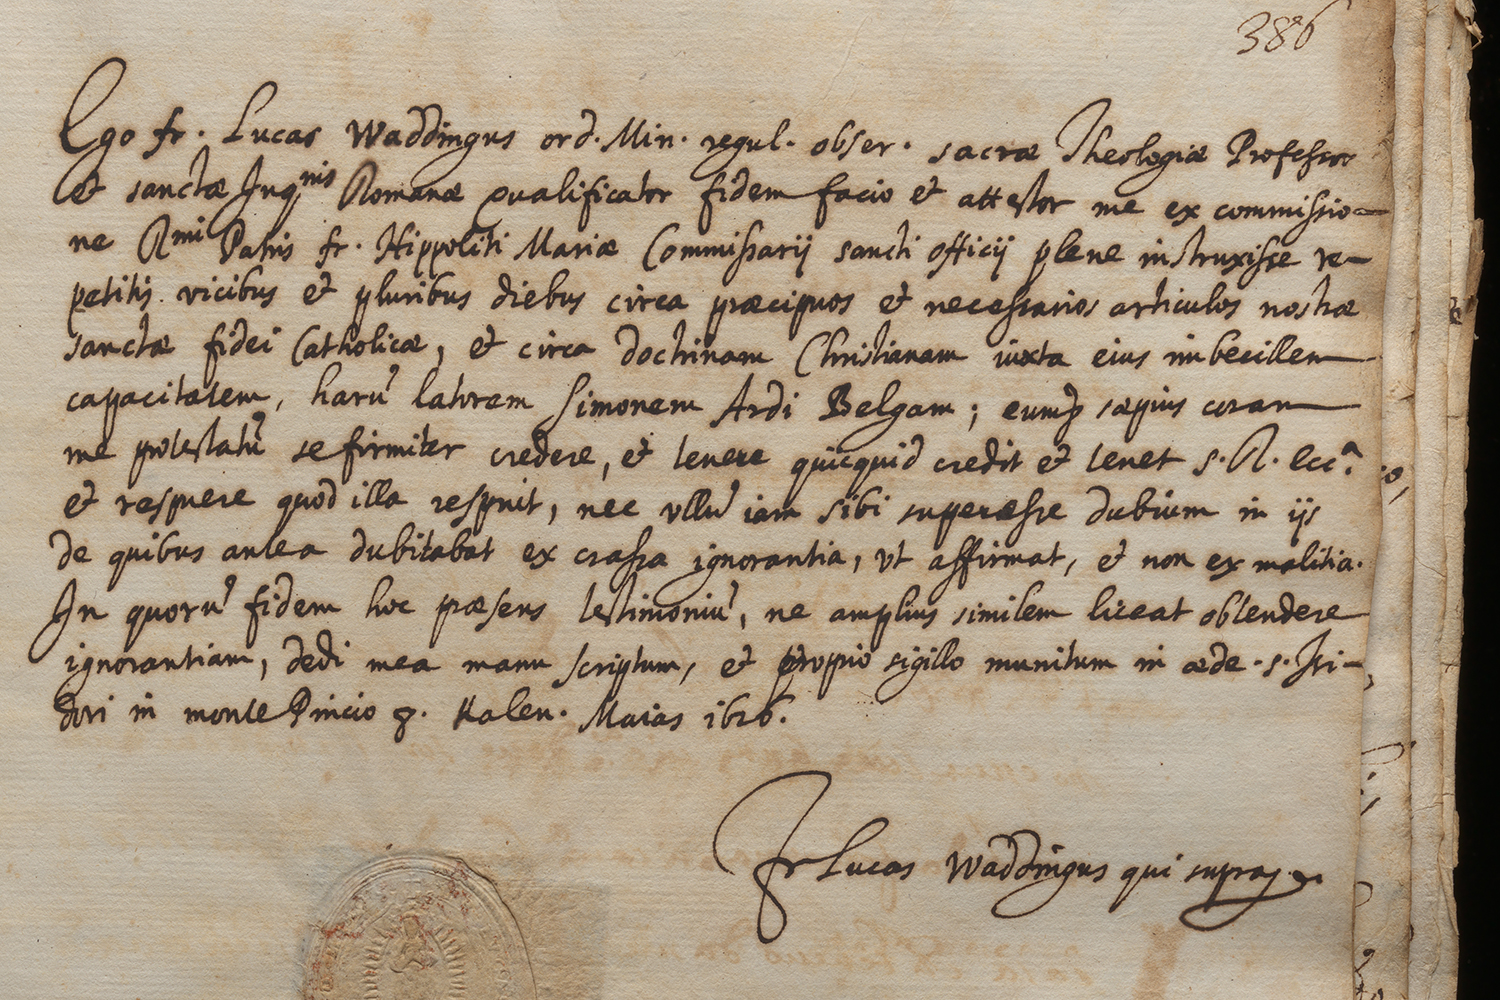 386
Ego fr. Lucas Waddingus ord. Min. regul. obser. sacræ Theologiæ Professor
et sanctæ Inq.nis Romanæ qualificator fidem facio et attestor me ex commissio-
ne Rmi Patris fr. Hippoliti Mariæ Commissarij sancti officij plene instruxisse re-
petitis vicibus et pluribus diebus circa præcipuos et necessarios articulos nostræ
sanctæ fidei Catholicæ, et circa doctrinam Christianam iuxta eius imbecillem
capacitatem, harū latorem Simonem Ardi Belgam; eumq sæpius coram
me protestatū se firmiter credere, et tenere quicquid credit et tenet s. R. ecc.a
et respuere quod illa respuit, nec ullū iam sibi superesse dubium in ijs
de quibus antea dubitabat ex crassa ignorantia, ut affirmat, et non ex malitia.
In quorū fidem hoc præsens testimoniū, ne amplius similem liceat obtendere
ignorantiam, dedi mea manu scriptum, et proprio sigillo munitum in æde s. Isi-
dori in monte Pincio 8. Kalen. Maias 1626.
Fr Lucas Waddingus qui supra